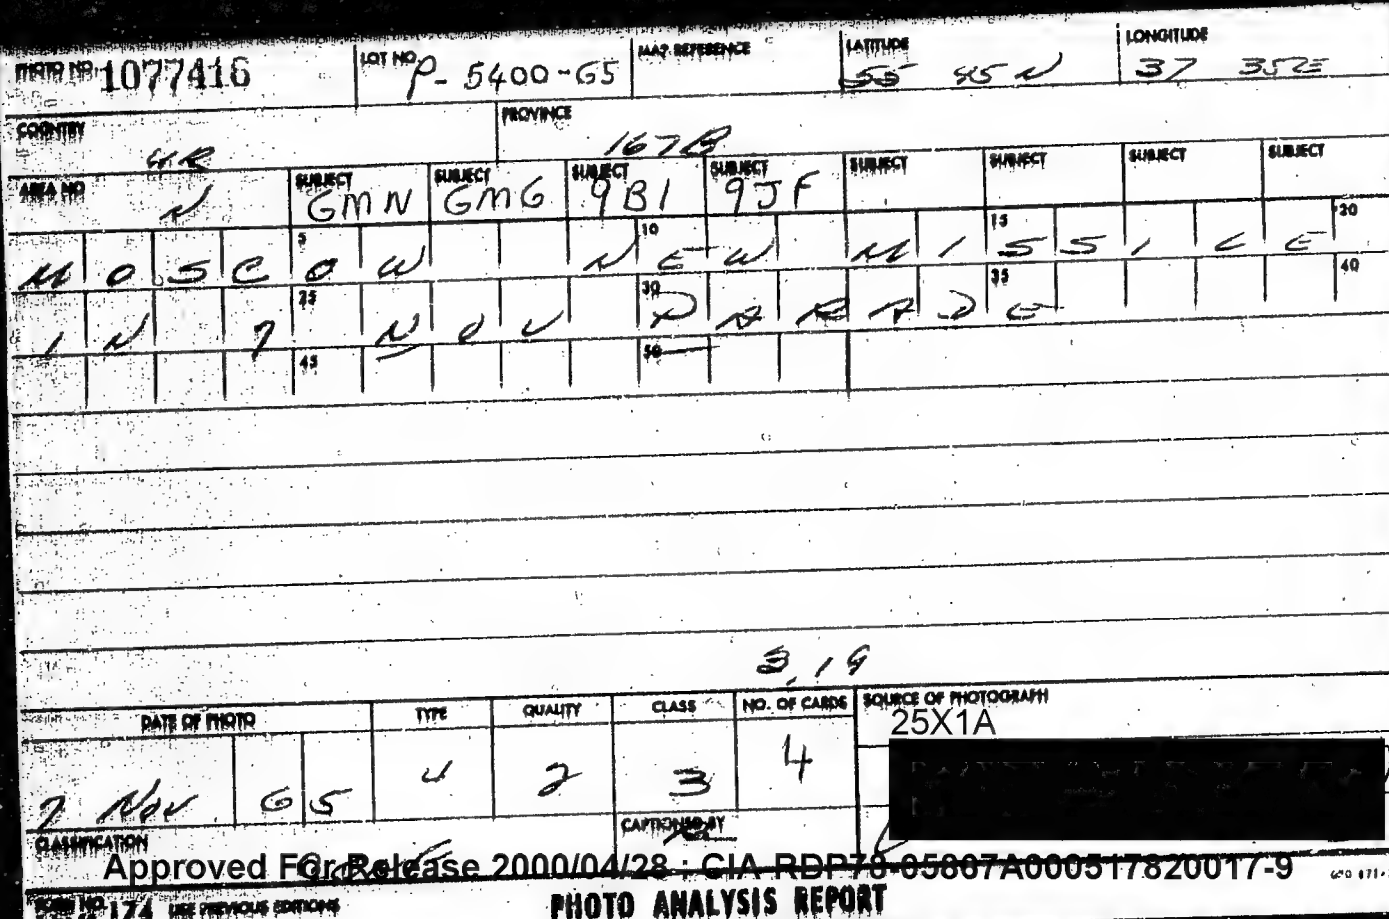 PHOTO NO. 1077416 LOT NO. P-5400-65 MAP REFERENCE LATITUDE 55 45 N LONGITUDE 37 35 E
COUNTRY UR PROVINCE 167B
AREA NO N SUBJECT GMN SUBJECT GMG SUBJECT 9B1 SUBJECT 9JF SUBJECT SUBJECT SUBJECT SUBJECT
5 10 15 20
MOSCOW NEW MISSILE
25 30 35 40
IN 7 NOV PARADE
45 50
3,19
DATE OF PHOTO TYPE QUALITY CLASS NO. OF CARDS SOURCE OF PHOTOGRAPH
25X1A
7 Nov 65 4 2 3 4
CLASSIFICATION CAPTIONED BY
Approved For Release 2000/04/28 : CIA-RDP78-05867A000517820017-9
FORM NO. 174 USE PREVIOUS EDITIONS PHOTO ANALYSIS REPORT